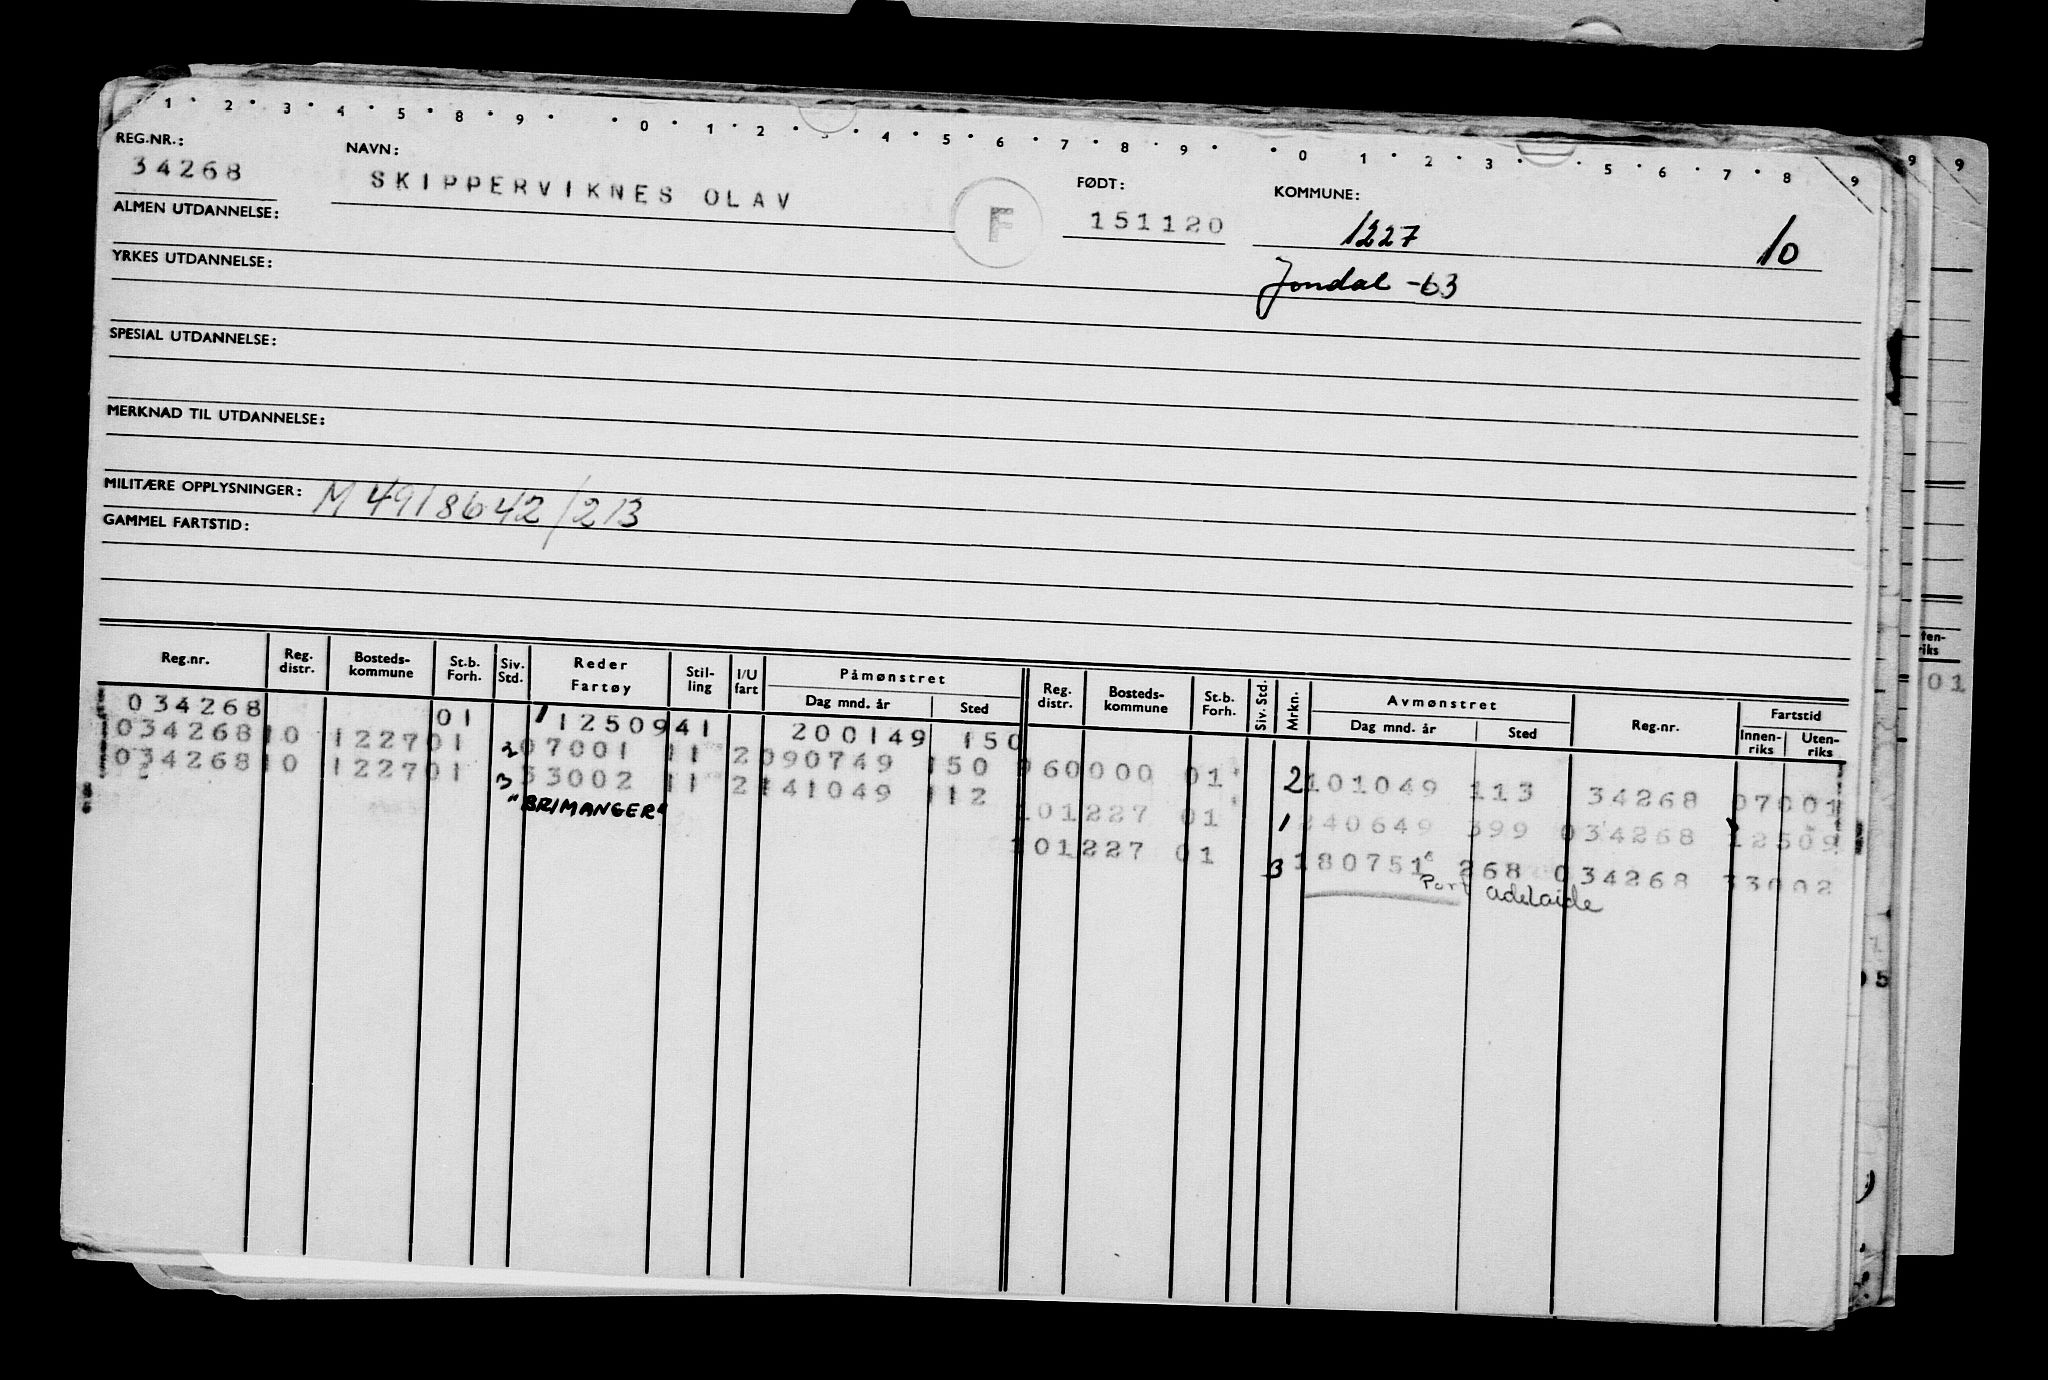 1 · 2 · 3 · 4 · 5 · 8 · 9 · · 0 · 1 · 2 · 3 · 4 · 5 · 6 · 7 · 8 · 9 · · 0 1 · 2 · 3 · · 5 · 6 · 7 · 8 9
REG.NR.: NAVN: FØDT: KOMMUNE:
34268 SKIPPERVIKNES OLAV F 151120 1227 10
ALMEN UTDANNELSE:
Jondal -63
YRKES UTDANNELSE:
SPESIAL UTDANNELSE:
MERKNAD TIL UTDANNELSE:
MILITÆRE OPPLYSNINGER: M 4918642/213
GAMMEL FARTSTID:
Reg.nr. Reg. distr. Bosteds- kommune St.b. Forh. Siv. Std. Reder Fartøy Stil- ling I/U fart Påmønstret Dag mnd. år Sted Reg. distr. Bosteds- kommune St.b. Forh. Siv. Std. Mrkn. Avmønstret Dag mnd. år Sted Reg.nr. Fartstid Innen- riks Uten- riks
034268 01 1 12509 41 200149 150
034268 10 1227 01 2 07001 11 2 090749 150 960000 01 2 101049 113 34268 07001
034268 10 1227 01 3 33002 11 2 141049 112 101227 01 1 240649 399 034268 12509
"BRIMANGER" 101227 01 3 180751 268 034268 33002
Port Adelaide